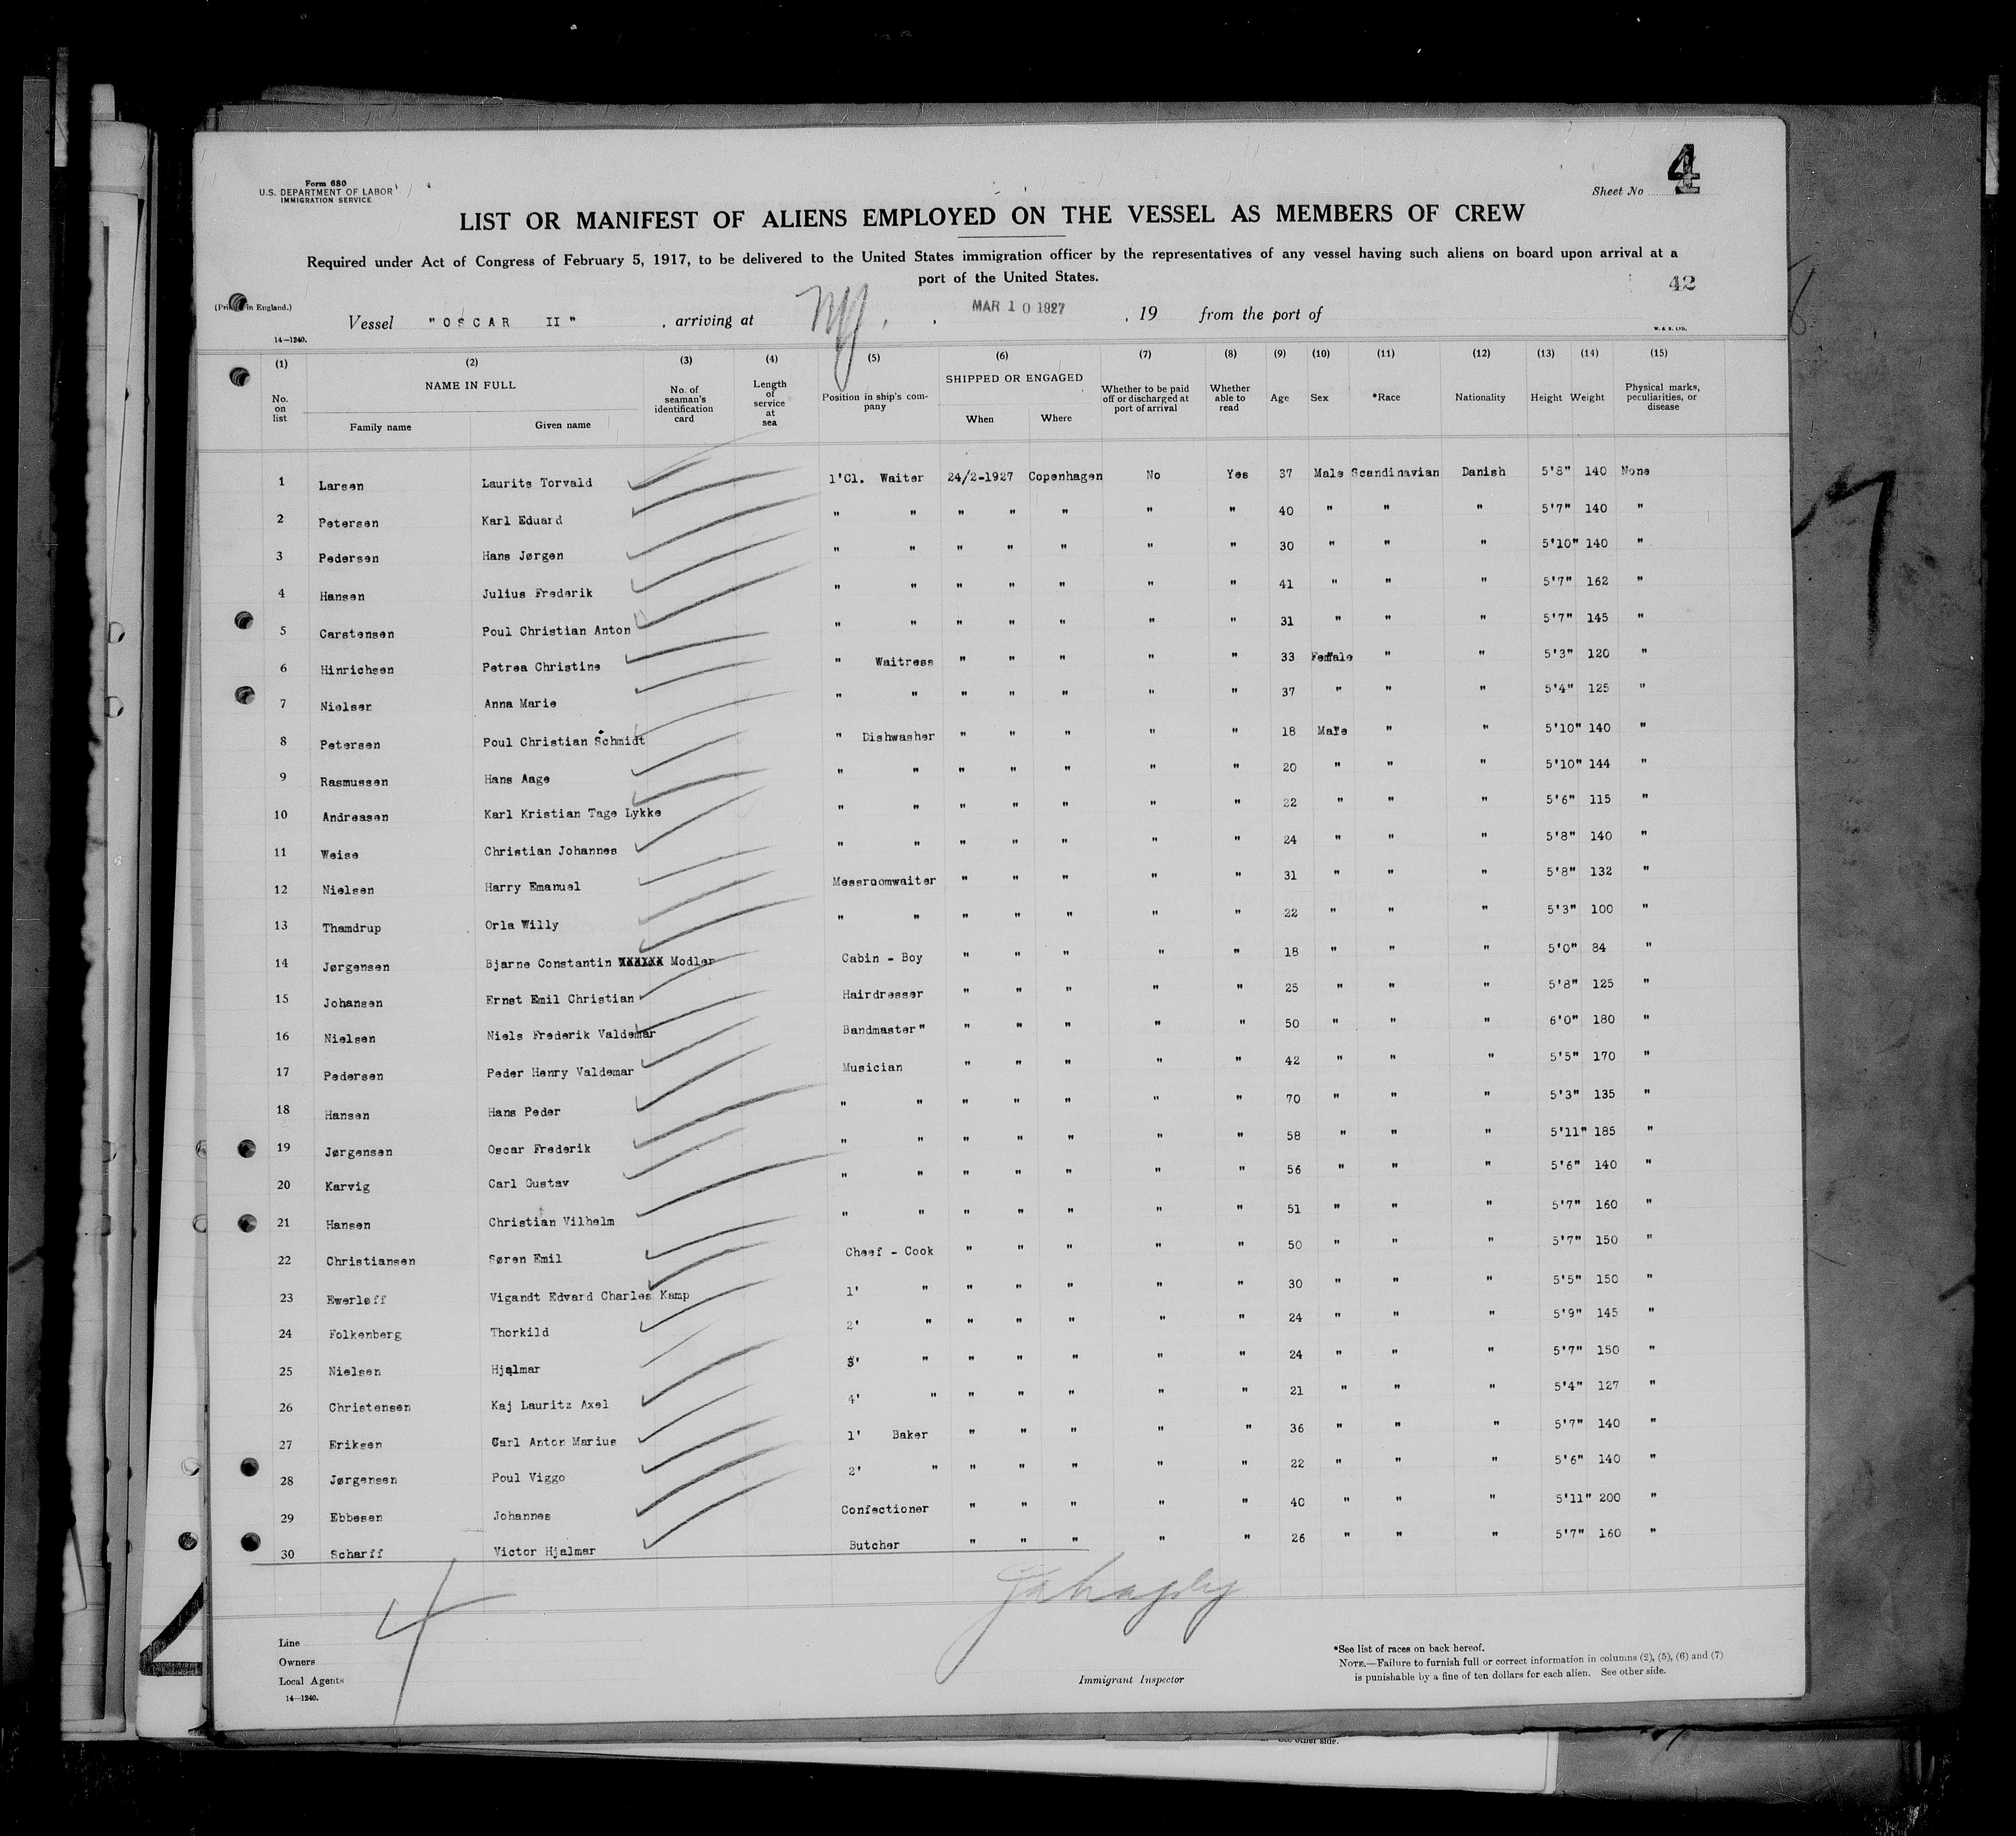 Form 680
U.S. DEPARTMENT OF LABOR
IMMIGRATION SERVICE
Sheet No 4
LIST OR MANIFEST OF ALIENS EMPLOYED ON THE VESSEL AS MEMBERS OF CREW
Required under Act of Congress of February 5, 1917, to be delivered to the United States immigration officer by the representatives of any vessel having such aliens on board upon arrival at a
port of the United States.
42
Vessel "OSCAR II" , arriving at NY. , MAR 10 1927 , 19 from the port of
14—1240.
W. & S. LTD.
(1) (2) (3) (4) (5) (6) (7) (8) (9) (10) (11) (12) (13) (14) (15)
No. on list NAME IN FULL Family name Given name No. of seaman's identification card Length of service at sea Position in ship's company SHIPPED OR ENGAGED When Where Whether to be paid off or discharged at port of arrival Whether able to read Age Sex *Race Nationality Height Weight Physical marks, peculiarities, or disease
1 Larsen Laurits Torvald 1'Cl. Waiter 24/2-1927 Copenhagen No Yes 37 Male Scandinavian Danish 5'8" 140 None
2 Petersen Karl Eduard " " " " " " " 40 " " " 5'7" 140 "
3 Pedersen Hans Jørgen " " " " " " " 30 " " " 5'10" 140 "
4 Hansen Julius Frederik " " " " " " " 41 " " " 5'7" 162 "
5 Carstensen Poul Christian Anton " " " " " " " 31 " " " 5'7" 145 "
6 Hinrichsen Petrea Christine " Waitress " " " " " 33 Female " " 5'3" 120 "
7 Nielsen Anna Marie " " " " " " " 37 " " " 5'4" 125 "
8 Petersen Poul Christian Schmidt " Dishwasher " " " " " 18 Male " " 5'10" 140 "
9 Rasmussen Hans Aage " " " " " " " 20 " " " 5'10" 144 "
10 Andreasen Karl Kristian Tage Lykke " " " " " " " 22 " " " 5'6" 115 "
11 Weise Christian Johannes " " " " " " " 24 " " " 5'8" 140 "
12 Nielsen Harry Emanuel Messroomwaiter " " " " " 31 " " " 5'8" 132 "
13 Thamdrup Orla Willy " " " " " " " 22 " " " 5'3" 100 "
14 Jørgensen Bjarne Constantin Modler Cabin - Boy " " " " " 18 " " " 5'0" 84 "
15 Johansen Ernst Emil Christian Hairdresser " " " " " 25 " " " 5'8" 125 "
16 Nielsen Niels Frederik Valdemar Bandmaster" " " " " " 50 " " " 6'0" 180 "
17 Pedersen Peder Henry Valdemar Musician " " " " " 42 " " " 5'5" 170 "
18 Hansen Hans Peder " " " " " " " 70 " " " 5'3" 135 "
19 Jørgensen Oscar Frederik " " " " " " " 58 " " " 5'11" 185 "
20 Karvig Carl Gustav " " " " " " " 56 " " " 5'6" 140 "
21 Hansen Christian Vilhelm " " " " " " " 51 " " " 5'7" 160 "
22 Christiansen Søren Emil Cheef - Cook " " " " " 50 " " " 5'7" 150 "
23 Ewerløff Vigandt Edvard Charles Kamp 1' " " " " " " 30 " " " 5'5" 150 "
24 Folkenberg Thorkild 2' " " " " " " 24 " " " 5'9" 145 "
25 Nielsen Hjalmar 3' " " " " " " 24 " " " 5'7" 150 "
26 Christensen Kaj Lauritz Axel 4' " " " " " " 21 " " " 5'4" 127 "
27 Eriksen Carl Anton Marius 1' Baker " " " " " 36 " " " 5'7" 140 "
28 Jørgensen Poul Viggo 2' " " " " " " 22 " " " 5'6" 140 "
29 Ebbesen Johannes Confectioner " " " " " 40 " " " 5'11" 200 "
30 Scharff Victor Hjalmar Butcher " " " " " 26 " " " 5'7" 160 "
Line
Owners
Local Agents
14—1240.
Immigrant Inspector
*See list of races on back hereof.
NOTE.—Failure to furnish full or correct information in columns (2), (5), (6) and (7)
is punishable by a fine of ten dollars for each alien. See other side.
See other side.